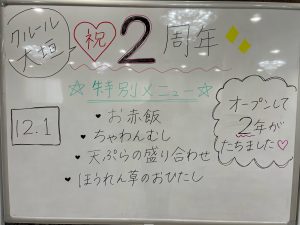 クルール
大垣
祝 2周年
☆特別メニュー☆
12.1
・お赤飯
・ちゃわんむし
・天ぷらの盛り合わせ
・ほうれん草のおひたし
オープンして
2年が
たちました♡